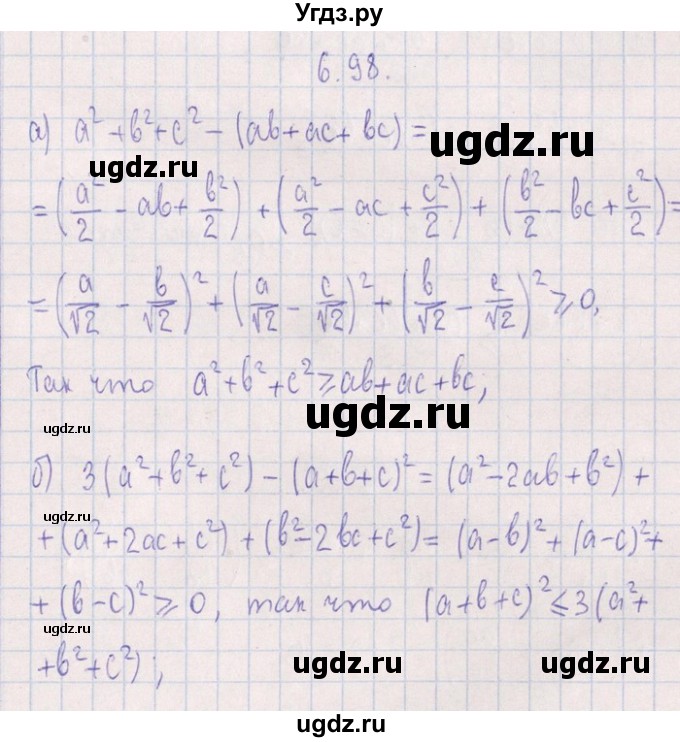 Угдз.ру
6.98.
а) a² + b² + c² - (ab + ac + bc) =
ugdz.ru ugdz.ru
= (a²/2 - ab + b²/2) + (a²/2 - ac + c²/2) + (b²/2 - bc + c²/2) =
= (a/√2 - b/√2)² + (a/√2 - c/√2)² + (b/√2 - c/√2)² ⩾ 0,
Так что a² + b² + c² ⩾ ab + ac + bc;
ugdz.ru ugdz.ru
б) 3(a² + b² + c²) - (a + b + c)² = (a² - 2ab + b²) +
ugdz.ru
+ (a² + 2ac + c²) + (b² - 2bc + c²) = (a - b)² + (a - c)² +
+ (b - c)² ⩾ 0, так что (a + b + c)² ⩽ 3(a² +
ugdz.ru
+ b² + c²);
ugdz.ru ugdz.ru
ugdz.ru